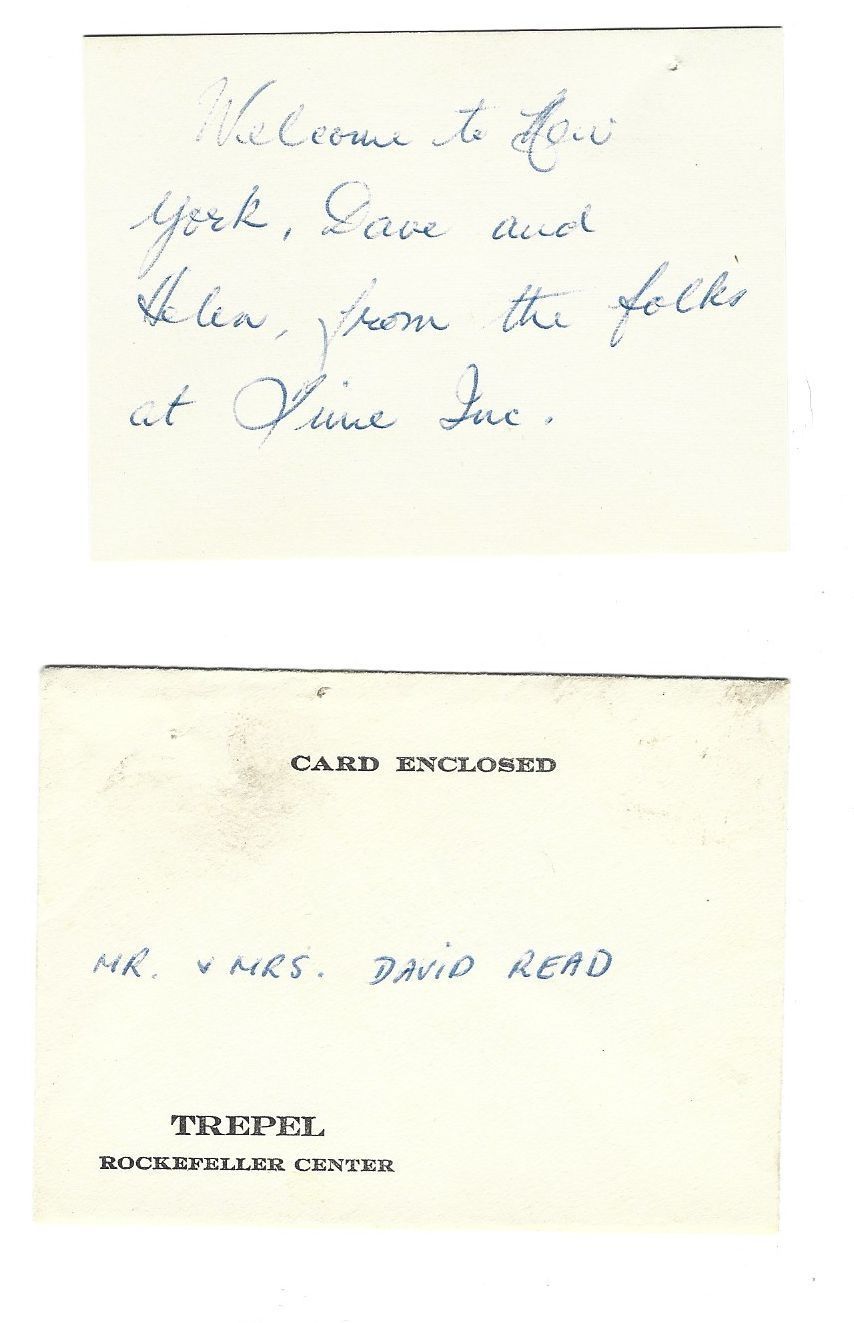 Welcome to New
York, Dave and
Helen, from the folks
at Time Inc.
CARD ENCLOSED
MR. & MRS. DAVID READ
TREPEL
ROCKEFELLER CENTER